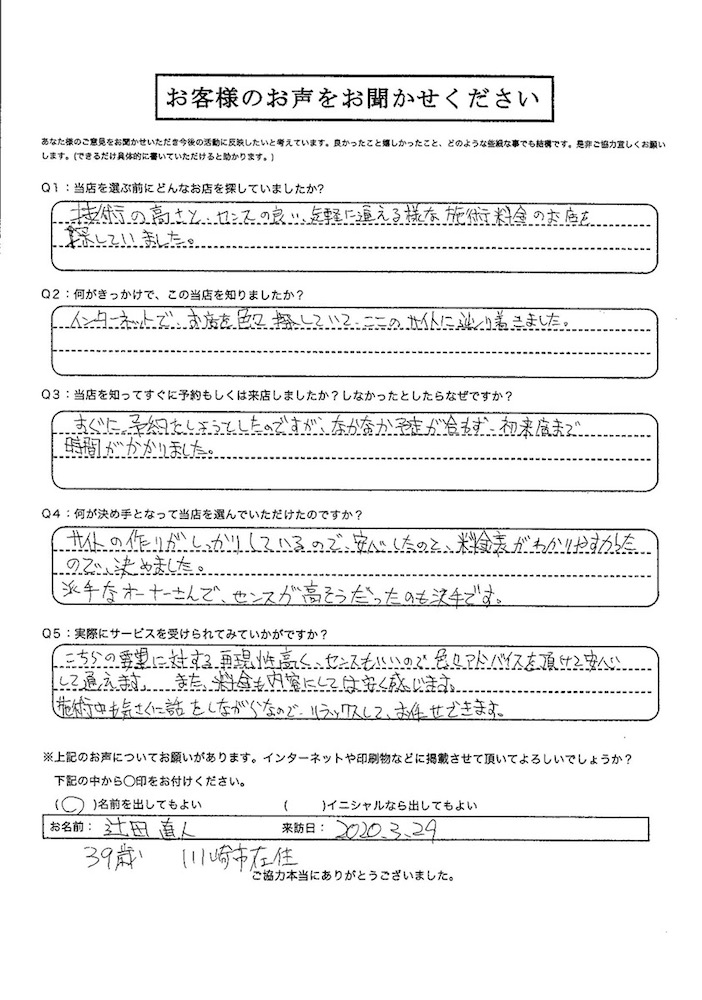 お客様のお声をお聞かせください
あなた様のご意見をお聞かせいただき今後の活動に反映したいと考えています。良かったこと嬉しかったこと、どのような些細な事でも結構です。是非ご協力宜しくお願い
します。(できるだけ具体的に書いていただけると助かります。)
Q1：当店を選ぶ前にどんなお店を探していましたか?
技術の高さと、センスの良い、気軽に通える様な施術料金のお店を
探していました。
Q2：何がきっかけで、この当店を知りましたか？
インターネットで、お店を色々探していて、ここのサイトに辿り着きました。
Q3：当店を知ってすぐに予約もしくは来店しましたか？しなかったとしたらなぜですか？
すぐに、予約をしようとしたのですが、なかなか予定が合わず、初来店まで
時間がかかりました。
Q4：何が決め手となって当店を選んでいただけたのですか？
サイトの作りがしっかりしているので、安心したのと、料金表がわかりやすかった
ので、決めました。
派手なオーナーさんで、センスが高そうだったのも決手です。
Q5：実際にサービスを受けられてみていかがですか？
こちらの要望に対する再現性高く、センスもいいので色々アドバイスを頂けて安心
して通えます。 また、料金も内容にしては安く感じます。
施術中も気さくに話をしながらなので、リラックスして、お任せできます。
※上記のお声についてお願いがあります。インターネットや印刷物などに掲載させて頂いてよろしいでしょうか？
下記の中から〇印をお付けください。
(○)名前を出してもよい ( )イニシャルなら出してもよい
お名前： 辻田 直人 来訪日： 2020.3.29
39歳 川崎市在住
ご協力本当にありがとうございました。